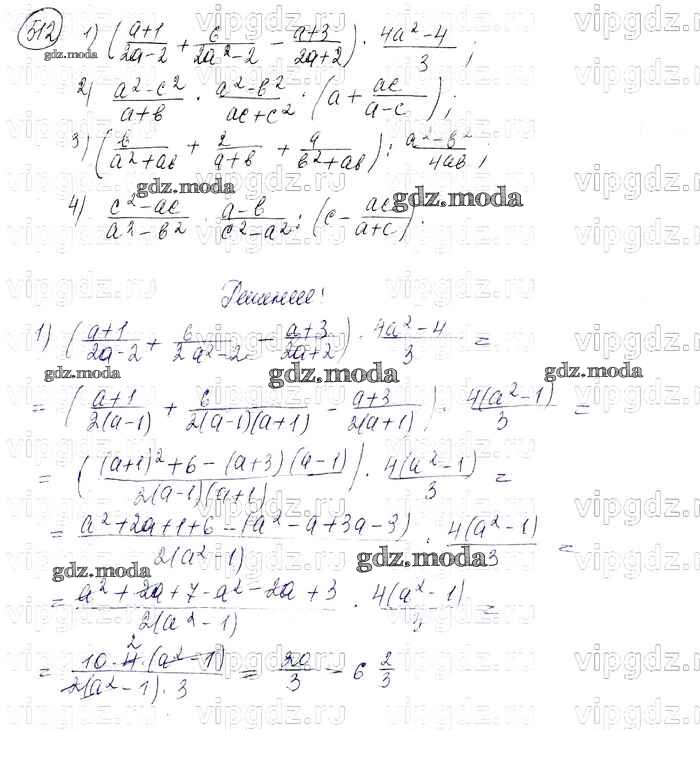 512 1) ((a+1)/(2a-2) + 6/(2a²-2) - (a+3)/(2a+2)) · (4a²-4)/3 ;
2) (a²-c²)/(a+b) · (a²-b²)/(ac+c²) · (a + ac/(a-c)) ;
3) (b/(a²+ab) + 2/(a+b) + a/(b²+ab)) : (a²-b²)/(4ab) ;
4) (c²-ac)/(a²-b²) · (a-b)/(c²-a²) : (c - ac/(a+c)).
Решение!
1) ((a+1)/(2a-2) + 6/(2a²-2) - (a+3)/(2a+2)) · (4a²-4)/3 =
= ((a+1)/(2(a-1)) + 6/(2(a-1)(a+1)) - (a+3)/(2(a+1))) · 4(a²-1)/3 =
= (((a+1)²+6-(a+3)(a-1))/(2(a-1)(a+1))) · 4(a²-1)/3 =
= (a²+2a+1+6-(a²-a+3a-3))/(2(a²-1)) · 4(a²-1)/3 =
= (a²+2a+7-a²-2a+3)/(2(a²-1)) · 4(a²-1)/3 =
= (10·4 2·(a²-1))/(2(a²-1)·3) = 20/3 = 6 2/3
gdz.moda
gdz.moda
gdz.moda
gdz.moda
gdz.moda
gdz.moda
gdz.moda
gdz.moda
vipgdz.ru